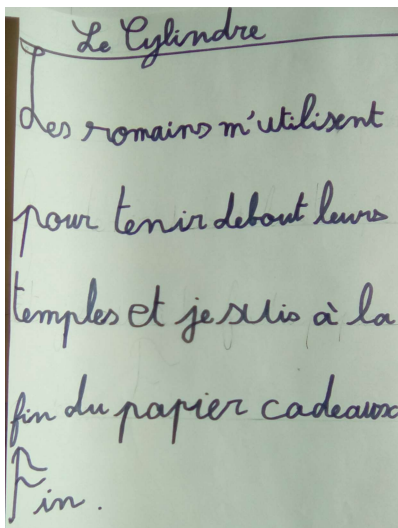 Le Cylindre
Les romains m'utilisent
pour tenir debout leurs
temples et je suis à la
fin du papier cadeaux
Fin.